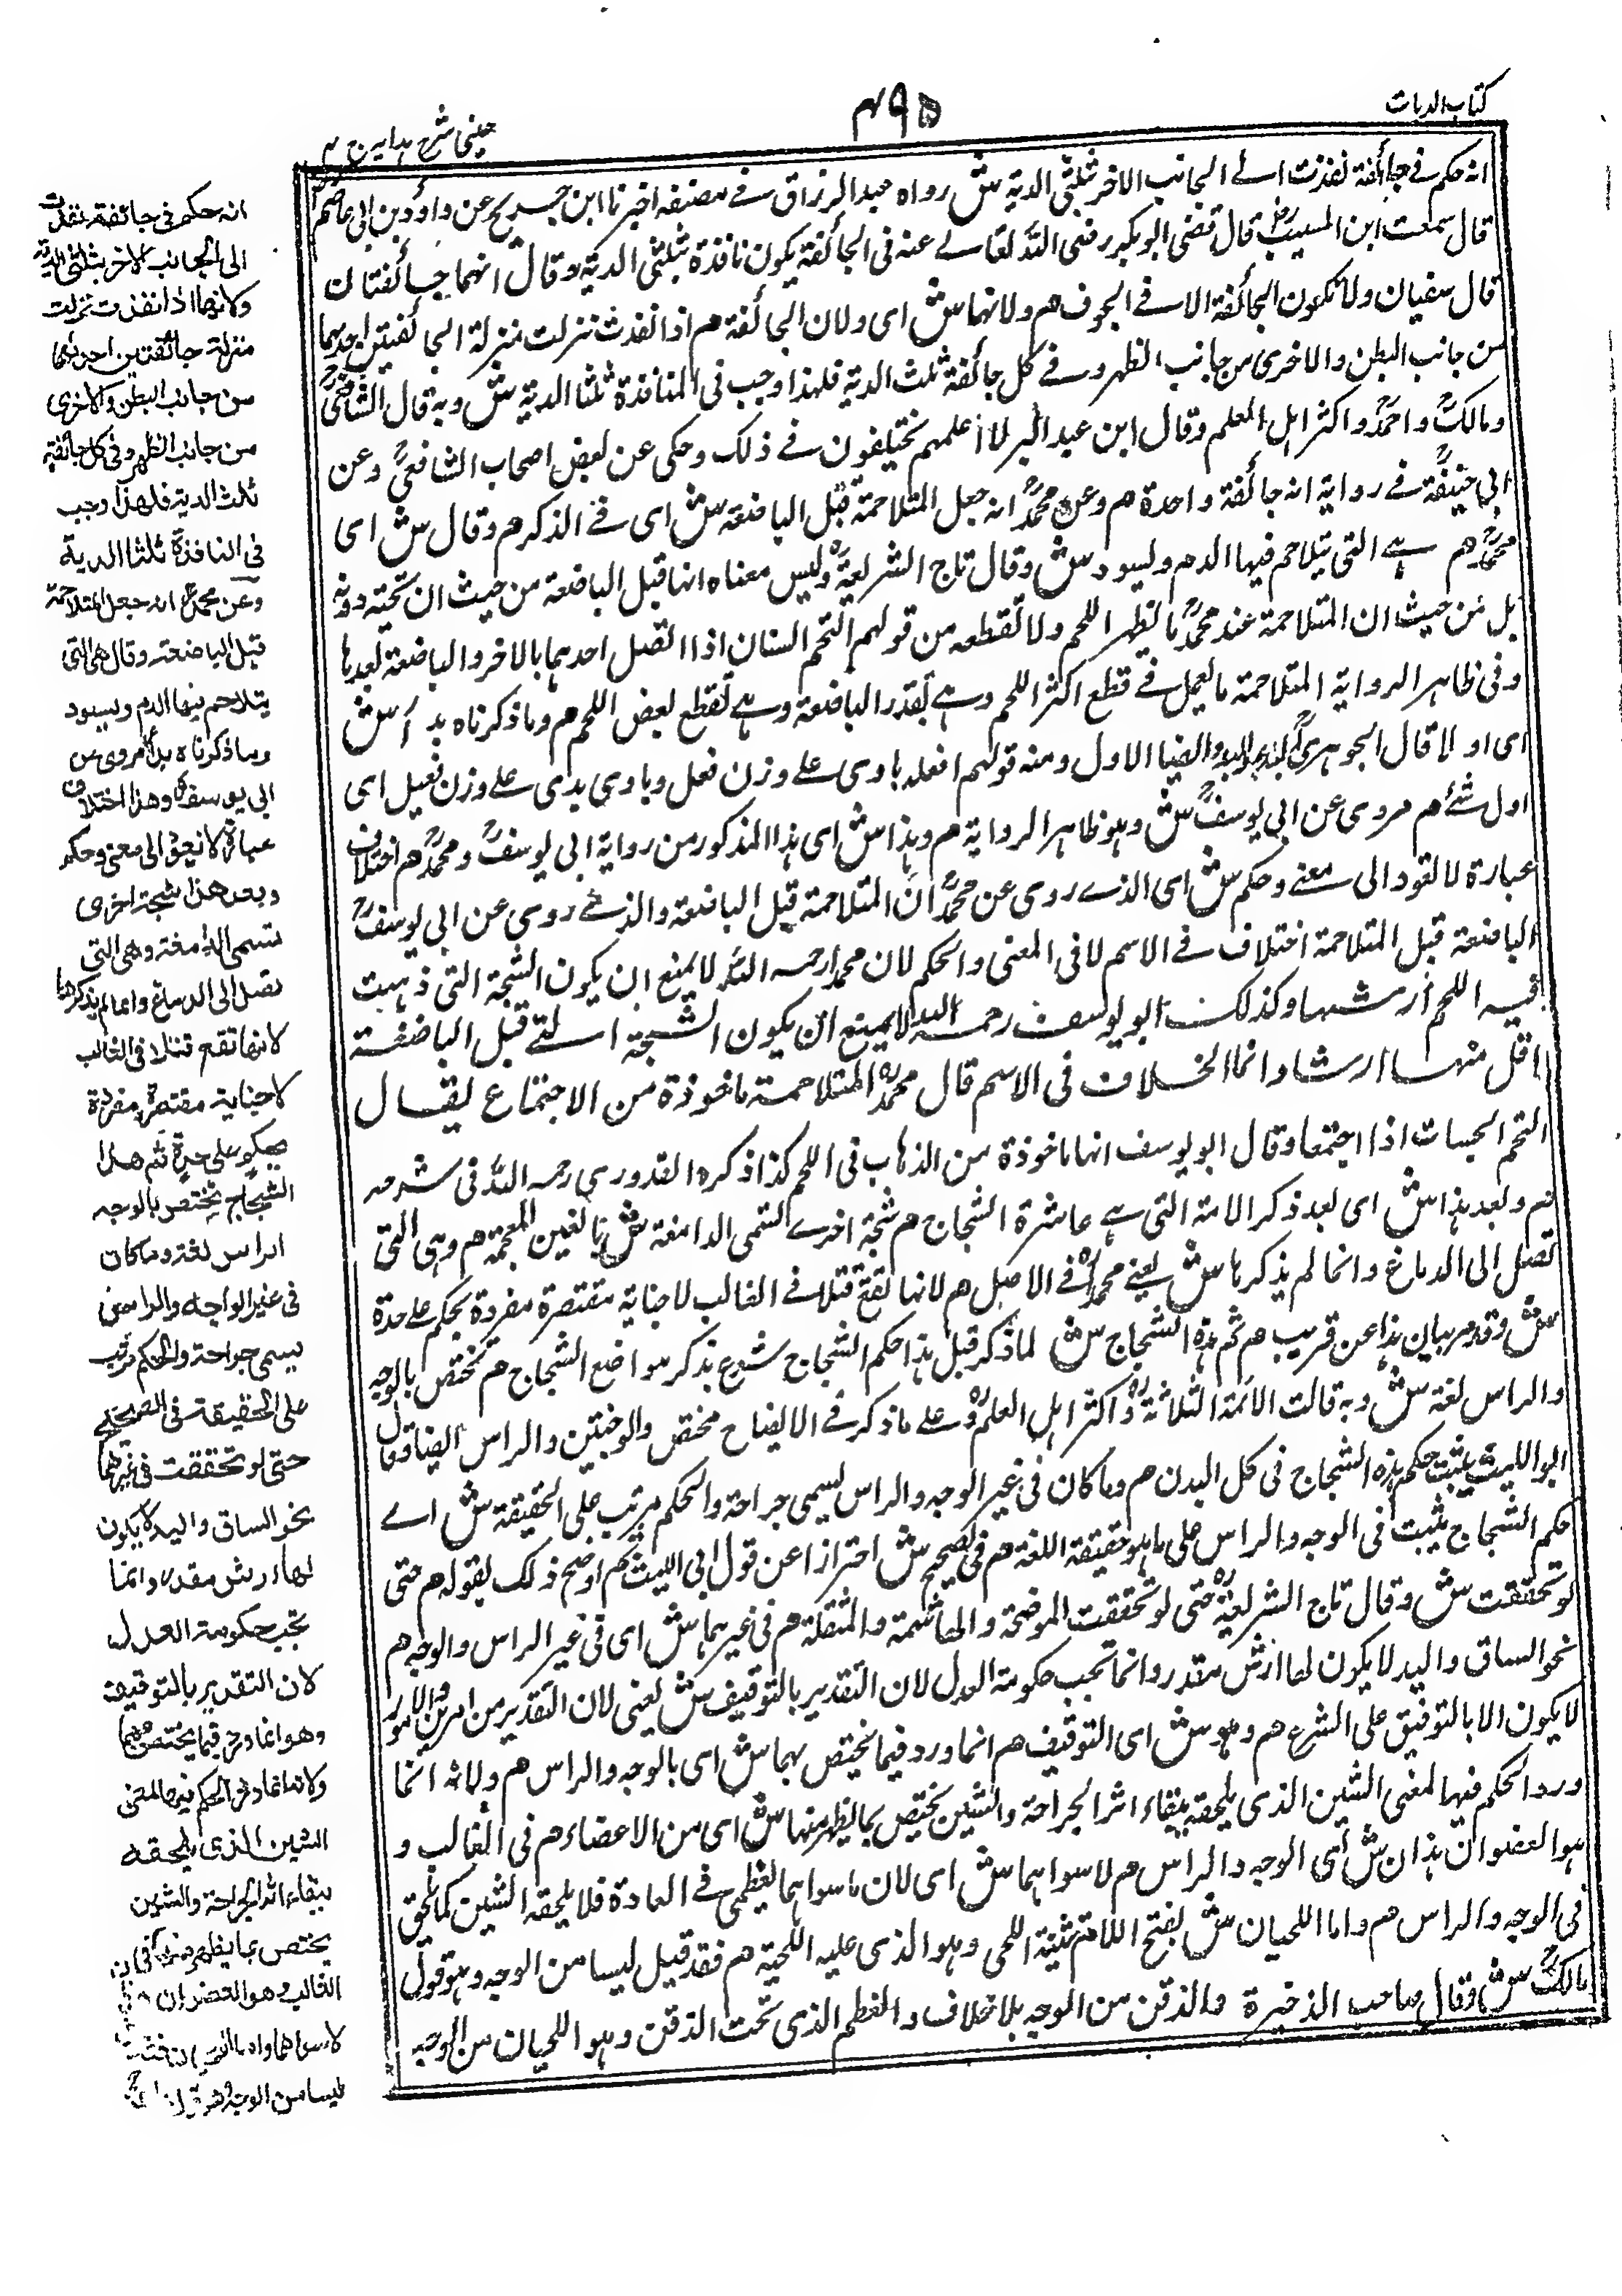 كتاب الديات
٤٩٥
عينى شرح هدايه ج ٤
انه حكم فى جائفة نفذت الى الجانب الاخر بثلثى الدية ش رواه عبد الرزاق فى مصنفه اخبرنا ابن جريج عن داود بن ابى عاصم
قال سمعت ابن المسيب قال قضى ابو بكر رضى الله تعالى عنه فى الجائفة يكون نافذة بثلثى الدية وقال انهما جائفتان
قال سفيان ولا تكون الجائفة الا فى الجوف هم ولانها ش اى ولان الجائفة هم اذا نفذت نزلت منزلة الجائفتين احدهما
من جانب البطن والاخرى من جانب الظهر وفى كل جائفة ثلث الدية فلهذا وجب فى النافذة ثلثا الدية ش وبه قال الشافعى
ومالك واحمد واكثر اهل العلم وقال ابن عبد البر لا اعلمهم يختلفون فى ذلك وحكى عن بعض اصحاب الشافعى وعن
ابى حنيفة فى رواية انه جائفة واحدة هم وعن محمد انه جعل المتلاحمة قبل الباضعة ش اى فى الذكر هم وقال ش اى
محمد هم هى التى يتلاحم فيها الدم ويسود ش وقال تاج الشريعة وليس معناه انها قبل الباضعة من حيث ان شجته دونه
بل من حيث ان المتلاحمة عند محمد ما يظهر اللحم ولا تقطعه من قولهم التحم السنان اذا اتصل احدهما بالاخر والباضعة بعدها
وفى ظاهر الرواية المتلاحمة ما يعمل فى قطع اكثر اللحم وهى بقدر الباضعة وهى تقطع بعض اللحم هم وما ذكرناه بدأ ش
اى اولا قال الجوهرى البدء والبدو ايضا الاول ومنه قولهم افعله بادى على وزن فعل وبادى بدى على وزن فعيل اى
اول شئ هم مروى عن ابى يوسف ش وهو ظاهر الرواية هم وهذا ش اى هذا المذكور من رواية ابى يوسف ومحمد هم اختلاف
عبارة لا تعود الى معنى وحكم ش اى الذى روى عن محمد ان المتلاحمة قبل الباضعة والذى روى عن ابى يوسف
الباضعة قبل المتلاحمة اختلاف فى الاسم لا فى المعنى والحكم لان محمدا رحمه الله لا يمنع ان يكون الشجة التى ذهبت
فيه اللحم ارشها وكذلك ابو يوسف رحمه الله لا يمنع ان يكون الشجة التى قبل الباضعة
اقل منها ارشا وانما الخلاف فى الاسم قال محمد المتلاحمة ماخوذة من الاجتماع يقال
التحم الجيشان اذا اجتمعا وقال ابو يوسف انها ماخوذة من الذهاب فى اللحم كذا ذكره القدورى رحمه الله فى شرحه
هم وبعد هذا ش اى بعد ذكر الامة التى هى عاشرة الشجاج هم شجة اخرى تسمى الدامغة ش بالغين المعجمة هم وهى التى
تصل الى الدماغ وانما لم يذكرها ش يعنى محمد فى الاصل هم لانها تقع قتلا فى الغالب لا جناية مقتصرة مفردة بحكم على حدة
ش وقد مر بيان هذا عن قريب هم ثم هذه الشجاج ش لما ذكر قبل هذا حكم الشجاج شرع بذكر مواضع الشجاج هم تختص بالوجه
والراس لغة ش وبه قالت الائمة الثلاثة واكثر اهل العلم وعلى ما ذكر فى الايضاح مختص والوجنتين والراس ايضا وقال
ابو الليث يثبت حكم هذه الشجاج فى كل البدن هم وما كان فى غير الوجه والراس يسمى جراحة والحكم مرتب على الحقيقة ش اى
حكم الشجاج يثبت فى الوجه والراس على ما هو حقيقة اللغة هم فى الصحيح ش احترازا عن قول ابى الليث ثم اوضح ذلك بقوله هم حتى
لو تحققت ش وقال تاج الشريعة حتى لو تحققت الموضحة والهاشمة والمنقلة هم فى غيرهما ش اى فى غير الراس والوجه هم
نحو الساق واليد لا يكون لها ارش مقدر وانما تجب حكومة العدل لان التقدير بالتوقيف ش يعنى لان التقدير من امر من الامور
لا يكون الا بالتوفيق على الشرع هم وهو ش اى التوقيف هم انما ورد فيما يختص بهما ش اى بالوجه والراس هم ولانه انما
ورد الحكم فيها لمعنى الشين الذى يلحقه ببقاء اثر الجراحة والشين يختص بما يظهر منها ش اى من الاعضاء هم فى الغالب و
هو العضوان هذان ش اى الوجه والراس هم لا سواهما ش اى لان ما سواهما يغطى فى العادة فلا يلحقه الشين كما يلحق
فى الوجه والراس هم واما اللحيان ش بفتح اللام تثنية اللحى وهو الذى عليه اللحية هم فقد قيل ليسا من الوجه وهو قول
مالك ش وقال صاحب الذخيرة والذقن من الوجه بلا خلاف والعظم الذى تحت الذقن وهو اللحيان من الوجه
انه حكم فى جائفة نفذت
الى الجانب الاخر بثلثى الدية
ولانها اذا نفذت نزلت
منزلة جائفتين احدهما
من جانب البطن والاخرى
من جانب الظهر وفى كل جائفة
ثلث الدية فلهذا وجب
فى النافذة ثلثا الدية
وعن محمد انه جعل المتلاحمة
قبل الباضعة وقال هى التى
يتلاحم فيها الدم ويسود
وما ذكرناه بدأ مروى عن
ابى يوسف وهذا اختلاف
عبارة لا تعود الى معنى وحكم
وبعد هذا شجة اخرى
تسمى الدامغة وهى التى
تصل الى الدماغ وانما لم يذكرها
لانها تقع قتلا فى الغالب
لا جناية مقتصرة مفردة
بحكم على حدة ثم هذه
الشجاج تختص بالوجه
والراس لغة وما كان
فى غير الوجه والراس
يسمى جراحة والحكم مرتب
على الحقيقة فى الصحيح
حتى لو تحققت فى غيرهما
نحو الساق واليد لا يكون
لها ارش مقدر وانما
تجب حكومة العدل
لان التقدير بالتوقيف
وهو انما ورد فيما يختص بهما
ولانه انما ورد الحكم فيها لمعنى
الشين الذى يلحقه
ببقاء اثر الجراحة والشين
يختص بما يظهر منها فى
الغالب وهو العضوان
لا سواهما واما اللحيان فقد
ليسا من الوجه وهو قول